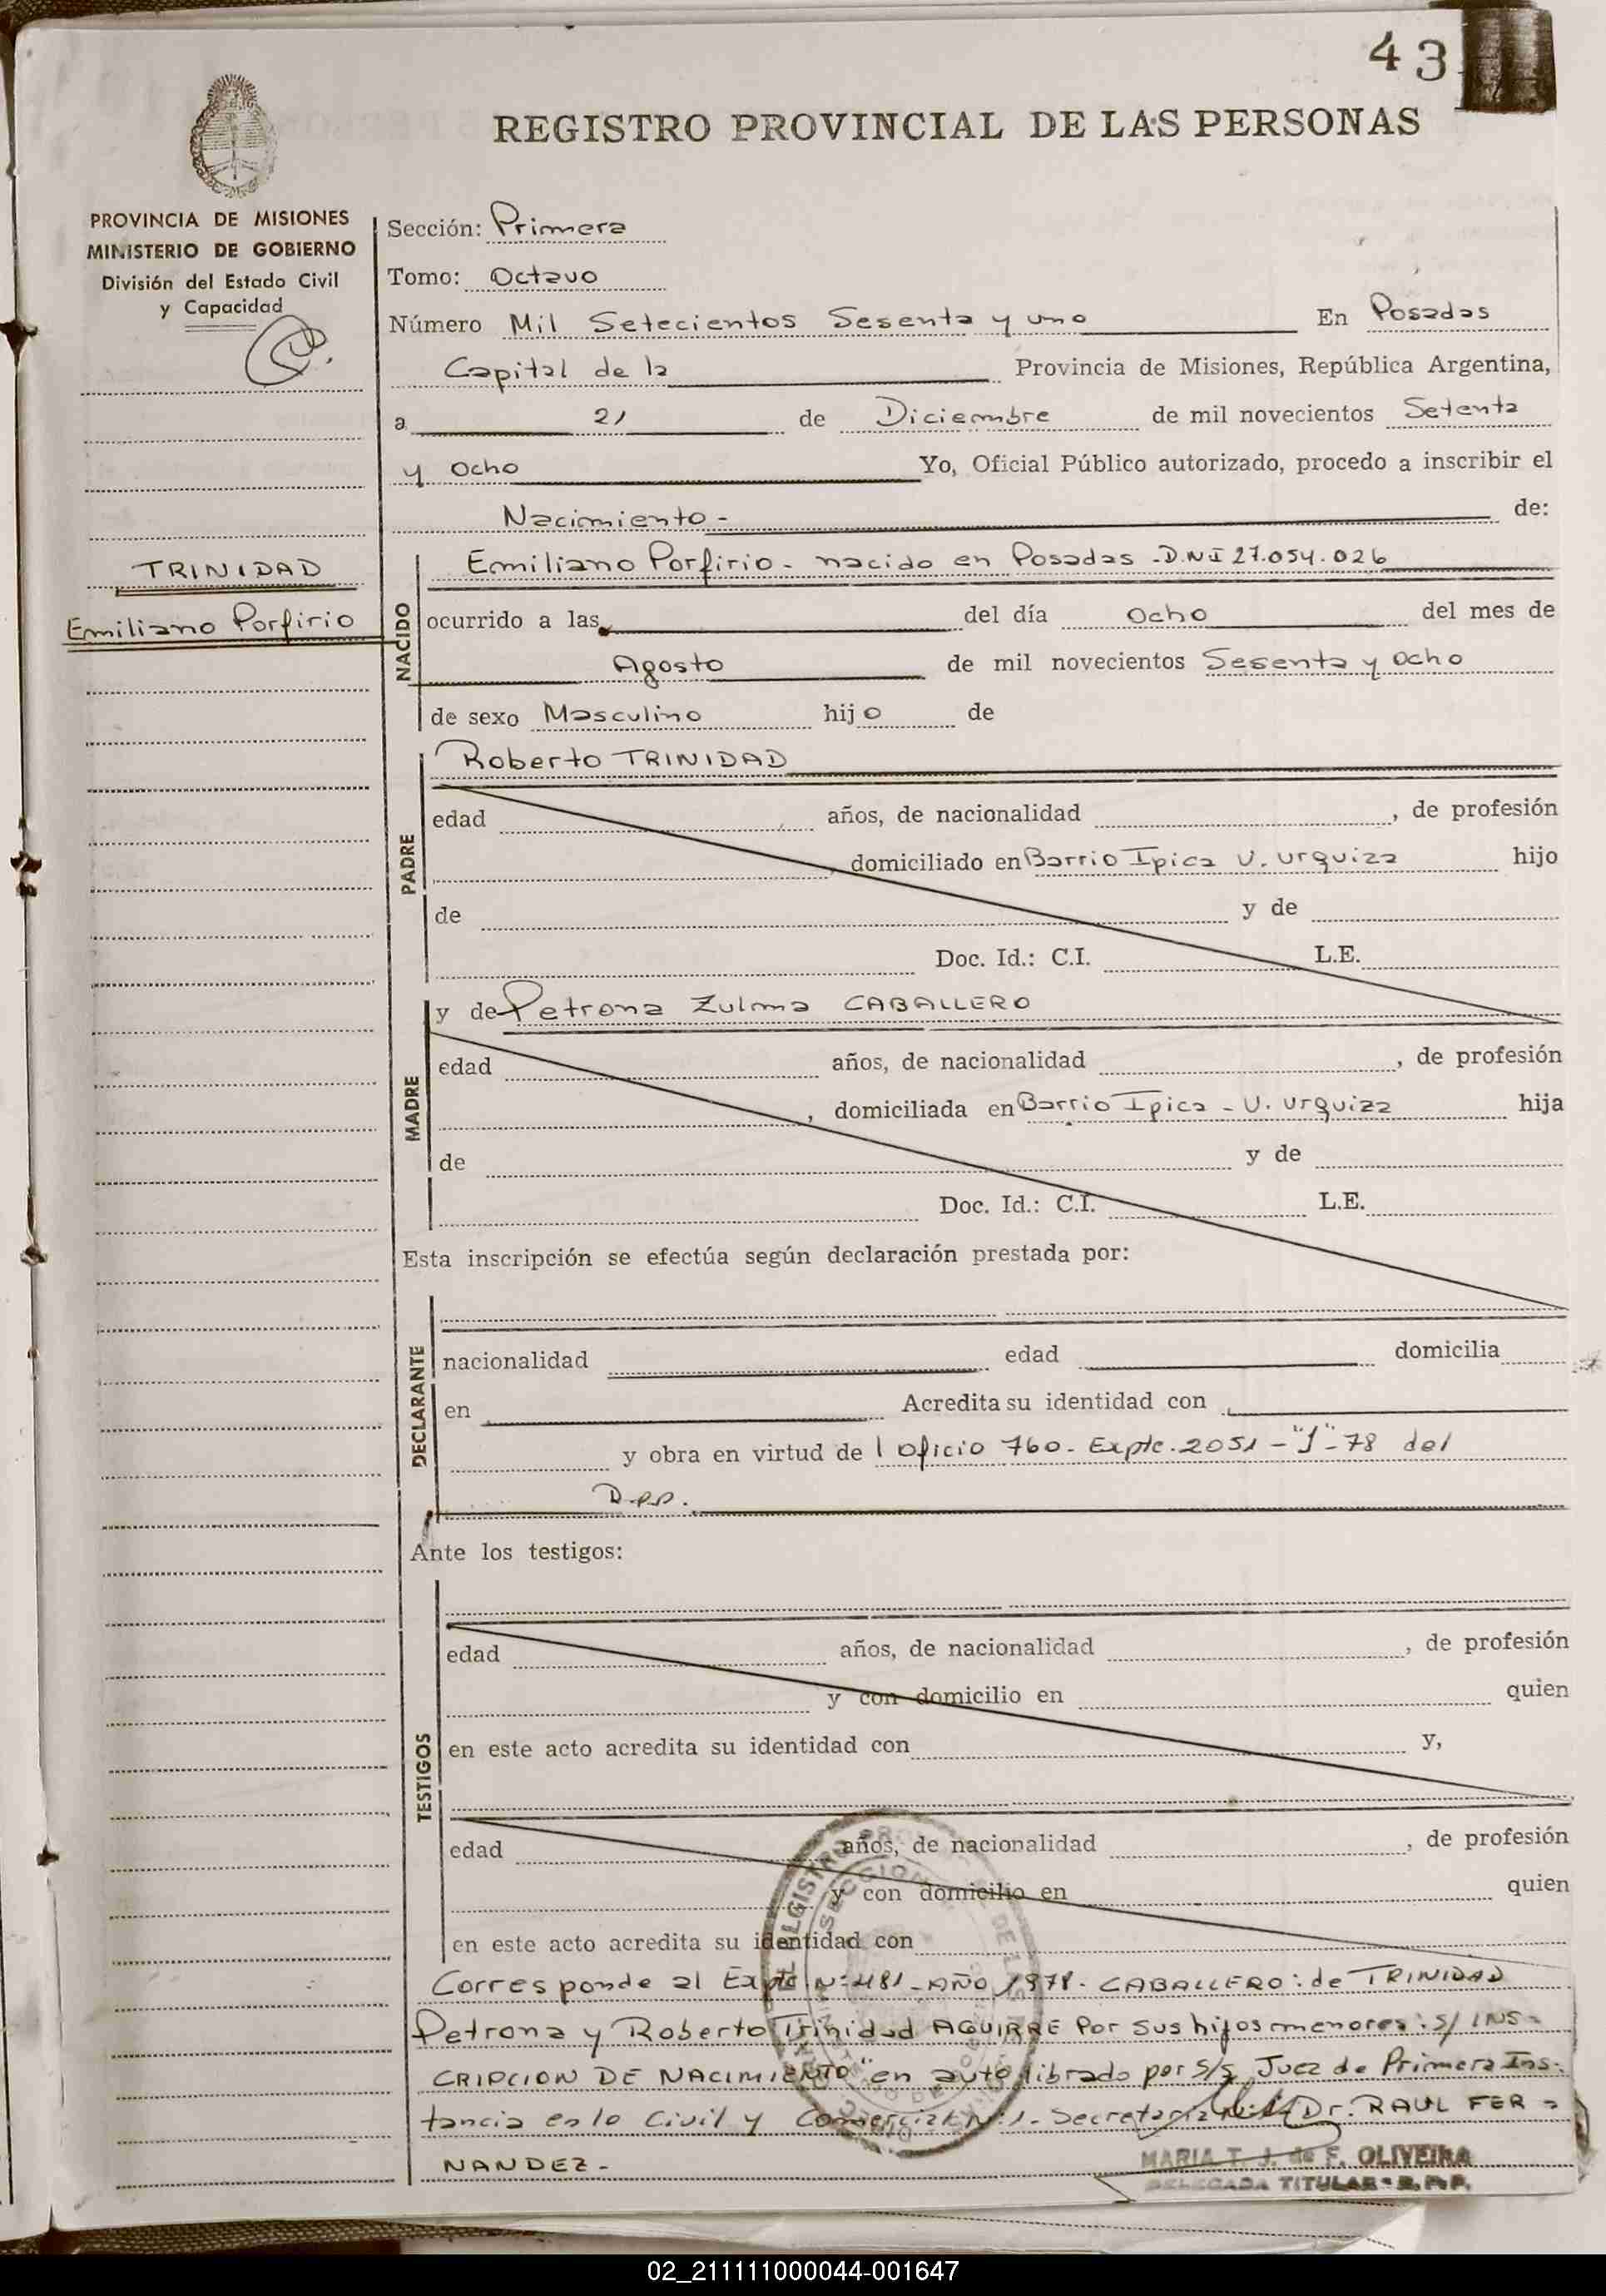 43
REGISTRO PROVINCIAL DE LAS PERSONAS
PROVINCIA DE MISIONES
MINISTERIO DE GOBIERNO
División del Estado Civil
y Capacidad
Sección: Primera
Tomo: Octavo
Número Mil Setecientos Sesenta y uno En Posadas
Capital de la Provincia de Misiones, República Argentina,
a 21 de Diciembre de mil novecientos Setenta
y Ocho Yo, Oficial Público autorizado, procedo a inscribir el
Nacimiento - de:
TRINIDAD
Emiliano Porfirio
NACIDO
Emiliano Porfirio - nacido en Posadas - D.N.I 27.054.026
ocurrido a las del día Ocho del mes de
Agosto de mil novecientos Sesenta y Ocho
de sexo Masculino hijo de
PADRE
Roberto TRINIDAD
edad años, de nacionalidad , de profesión
, domiciliado en Barrio Ipica V. Urquiza hijo
de y de
Doc. Id.: C.I. L.E.
MADRE
y de Petrona Zulma CABALLERO
edad años, de nacionalidad , de profesión
, domiciliada en Barrio Ipica - V. Urquiza hija
de y de
Doc. Id.: C.I. L.E.
Esta inscripción se efectúa según declaración prestada por:
DECLARANTE
nacionalidad edad domicilia
en Acredita su identidad con
y obra en virtud de l Oficio 760 - Expte. 2051 - "J" - 78 del
Ante los testigos:
TESTIGOS
edad años, de nacionalidad , de profesión
y con domicilio en quien
en este acto acredita su identidad con y,
edad años, de nacionalidad , de profesión
y con domicilio en quien
en este acto acredita su identidad con
Corresponde al Expte N: 481 - AÑO 1978 - CABALLERO: de TRINIDAD
Petrona y Roberto Trinidad AGUIRRE Por sus hijos menores: S/ INS-
CRIPCION DE NACIMIENTO" en auto librado por S/S Juez de Primera Ins-
tancia en lo Civil y Comercial N: 1 - Secretaria Dr. RAUL FER-
NANDEZ -
MARIA T. J. de F. OLIVEIRA
DELEGADA TITULAR - R.P.P.
02_211111000044-001647